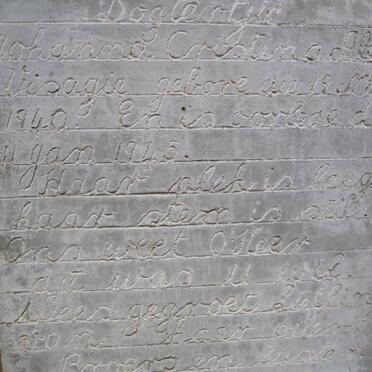 Dogtertjie
Johanna Cristina
Visagie gebore die 19
1940. En is oorlede
11 Jan 1945.
Haar plek is leeg
haar stem is stil.
Ons weet O Heer
dit was u wil.
Wees gegroet
van Haar
Broers en suster